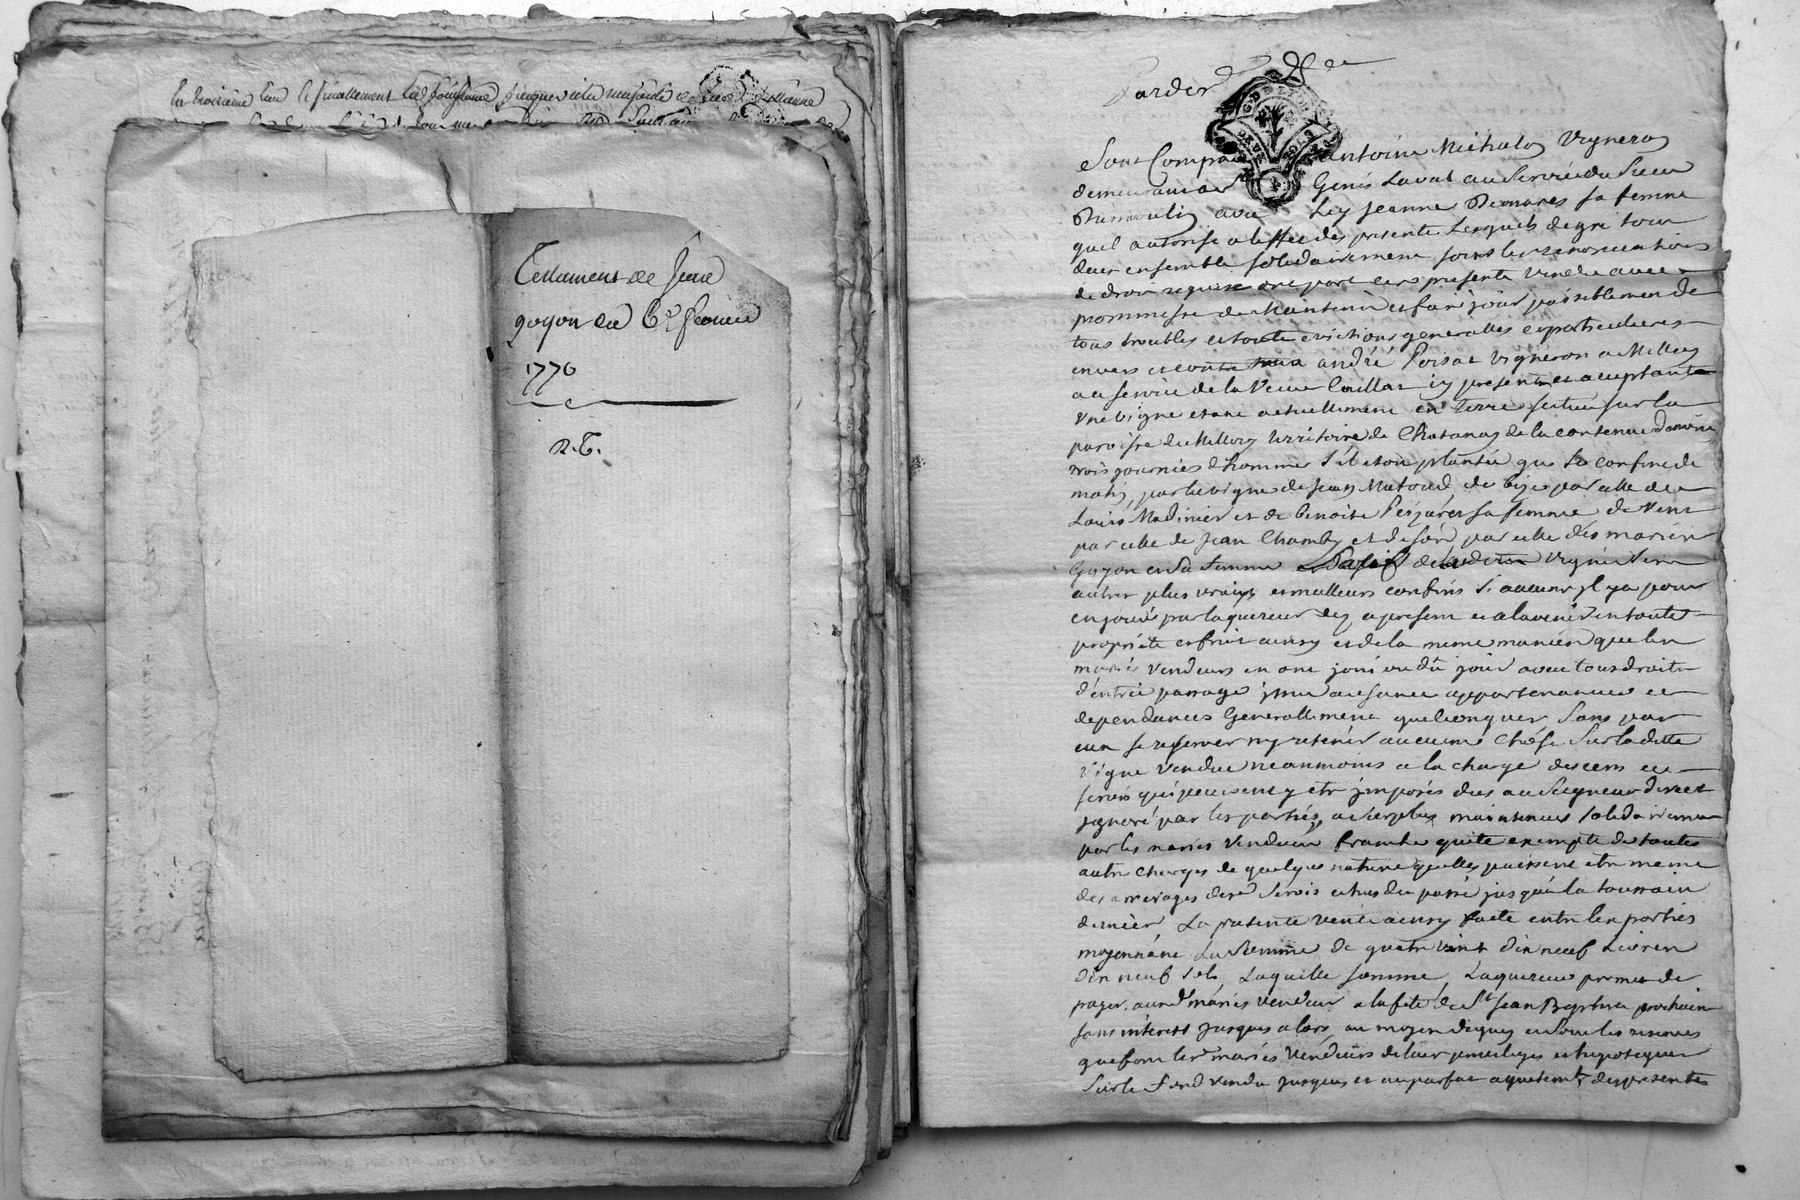 la troisieme
Testament de Jean
goyon du 6e fevrier
1770
R. T.
Pardev
Sont Comparu Antoine Michalon Vigneron
demeurant a St Genis Laval au Service du Sieur
Dumoulin avec luy Jeanne sa femme
quil autorise a leffet des presente Lesquels de gré tous
deux ensemble solidairement sous les renonciations
de droit requise ont par ces presente Vendu avec
prommesse de Maintenir et faire jouir paisiblement de
tous troubles et toute evictions generalles et particulieres
envers et contre tous andré Poisat Vigneron a Millery
au service de la Veuve Caillat icy present et acceptant
Une Vigne etant actuellement en terre scituée sur la
paroisse de Millery territoire de Chatanay de la contenue denviron
trois journées dhommes s'il etoit plantée qui se confine de
matin par la vigne de Jean Matoud de bize par celle de
Louis Madinier et de Benoite sa femme de Vent
par celle de Jean Chamby et de soir par celle des mariés
Goyon et sa femme Vigne sise
autres plus vrais et meilleurs confins si aucuns il y a pour
en jouir par laquereur dez a present et a lavenir en toute
propriété et fruit ainsy et de la meme maniere que les
mariés Vendeurs en ont joui ou dû jouir avec tous droits
d'entrée passage issue aisance appartenances et
dependances Generallement quelconques Sans par
eux se reserver ny retenir aucune chose Sur la ditte
Vigne Vendue neanmoins a la charge des cens et
servis qui peuvent y etre imposés dus au Seigneur direct
ignoré par les parties, au surplus maintenue solidairement
par les mariés Vendeurs franche quitte exempte de toutes
autre charges de quelque nature quelles puissent etre meme
des arrerages desd servis echus du passé jusqu'a la toussain
derniere La presente vente ainsy faite entre les parties
moyennant La Somme de quatre vint dix neuf Livres
dix neuf sols, Laquelle somme, Laquereur promet de
payer auxd mariés Vendeur a la fete de St Jean Baptiste prochain
sans intérest jusques alors, au moyen dequoy et sous les reserves
que font lesd mariés Vendeurs de leur privileges et hipoteques
Sur le fond vendu jusques et au parfait aquitemt des presentes